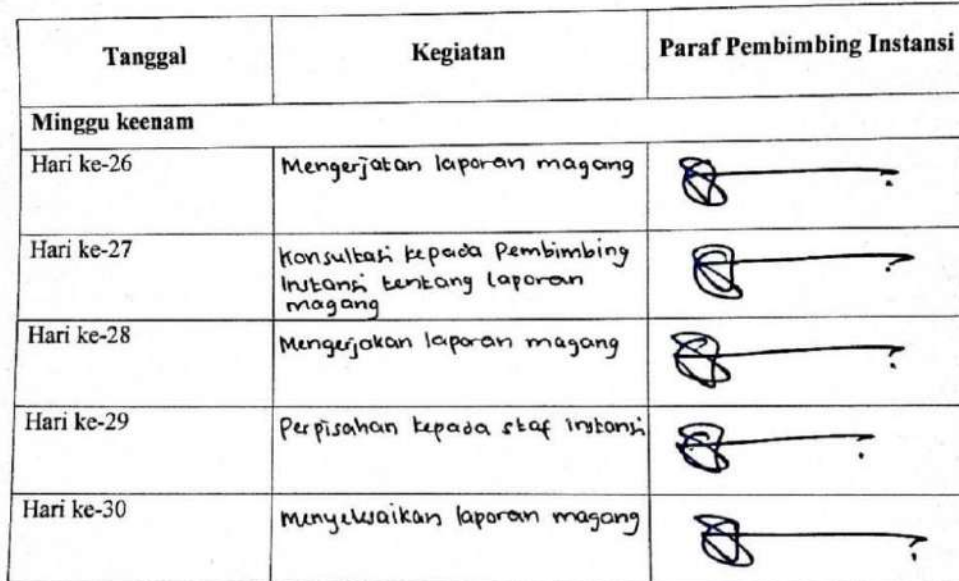 Tanggal Kegiatan Paraf Pembimbing Instansi
Minggu keenam
Hari ke-26 Mengerjakan laporan magang
Hari ke-27 Konsultasi kepada Pembimbing
Instansi tentang laporan
magang
Hari ke-28 Mengerjakan laporan magang
Hari ke-29 Perpisahan kepada staf instansi
Hari ke-30 Menyelesaikan laporan magang